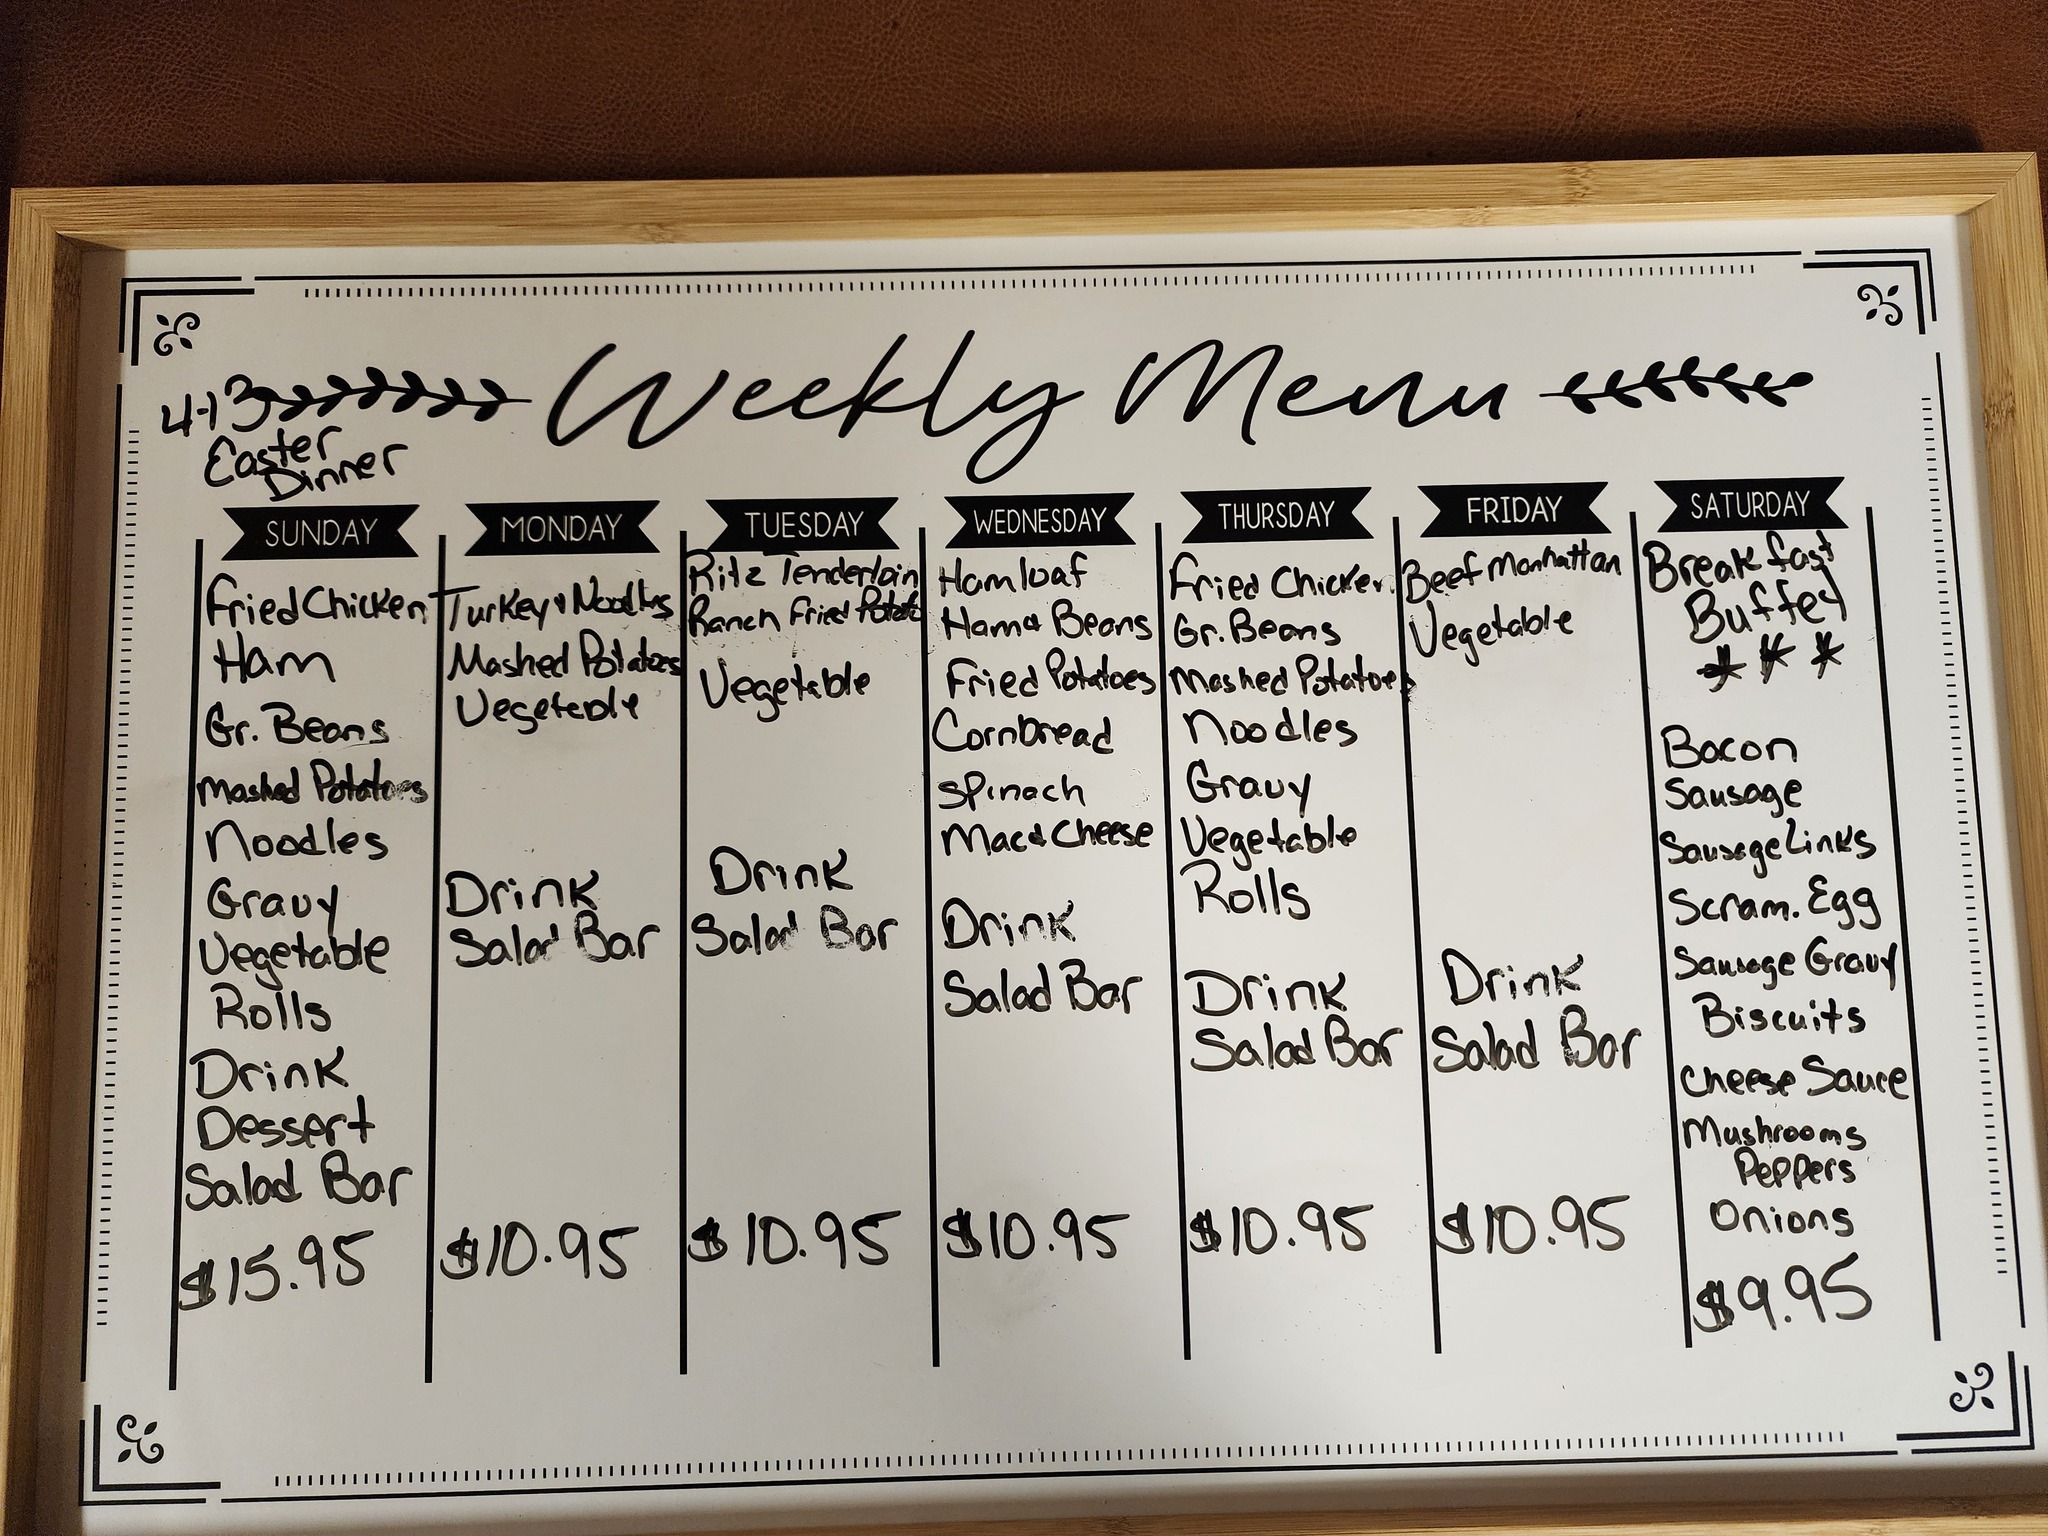 Weekly Menu
4-13
Easter
Dinner
SUNDAY
Fried Chicken
Ham
Gr. Beans
Mashed Potatoes
Noodles
Gravy
Vegetable
Rolls
Drink
Dessert
Salad Bar
$15.95
MONDAY
Turkey & Noodles
Mashed Potatoes
Vegetable
Drink
Salad Bar
$10.95
TUESDAY
Ritz Tenderloin
Ranch Fried Potato
Vegetable
Drink
Salad Bar
$10.95
WEDNESDAY
Ham loaf
Ham & Beans
Fried Potatoes
Cornbread
Spinach
Mac & Cheese
Drink
Salad Bar
$10.95
THURSDAY
Fried Chicken
Gr. Beans
Mashed Potatoes
Noodles
Gravy
Vegetable
Rolls
Drink
Salad Bar
$10.95
FRIDAY
Beef Manhattan
Vegetable
Drink
Salad Bar
$10.95
SATURDAY
Breakfast
Buffet
* * *
Bacon
Sausage
Sausage Links
Scram. Egg
Sausage Gravy
Biscuits
Cheese Sauce
Mushrooms
Peppers
Onions
$9.95